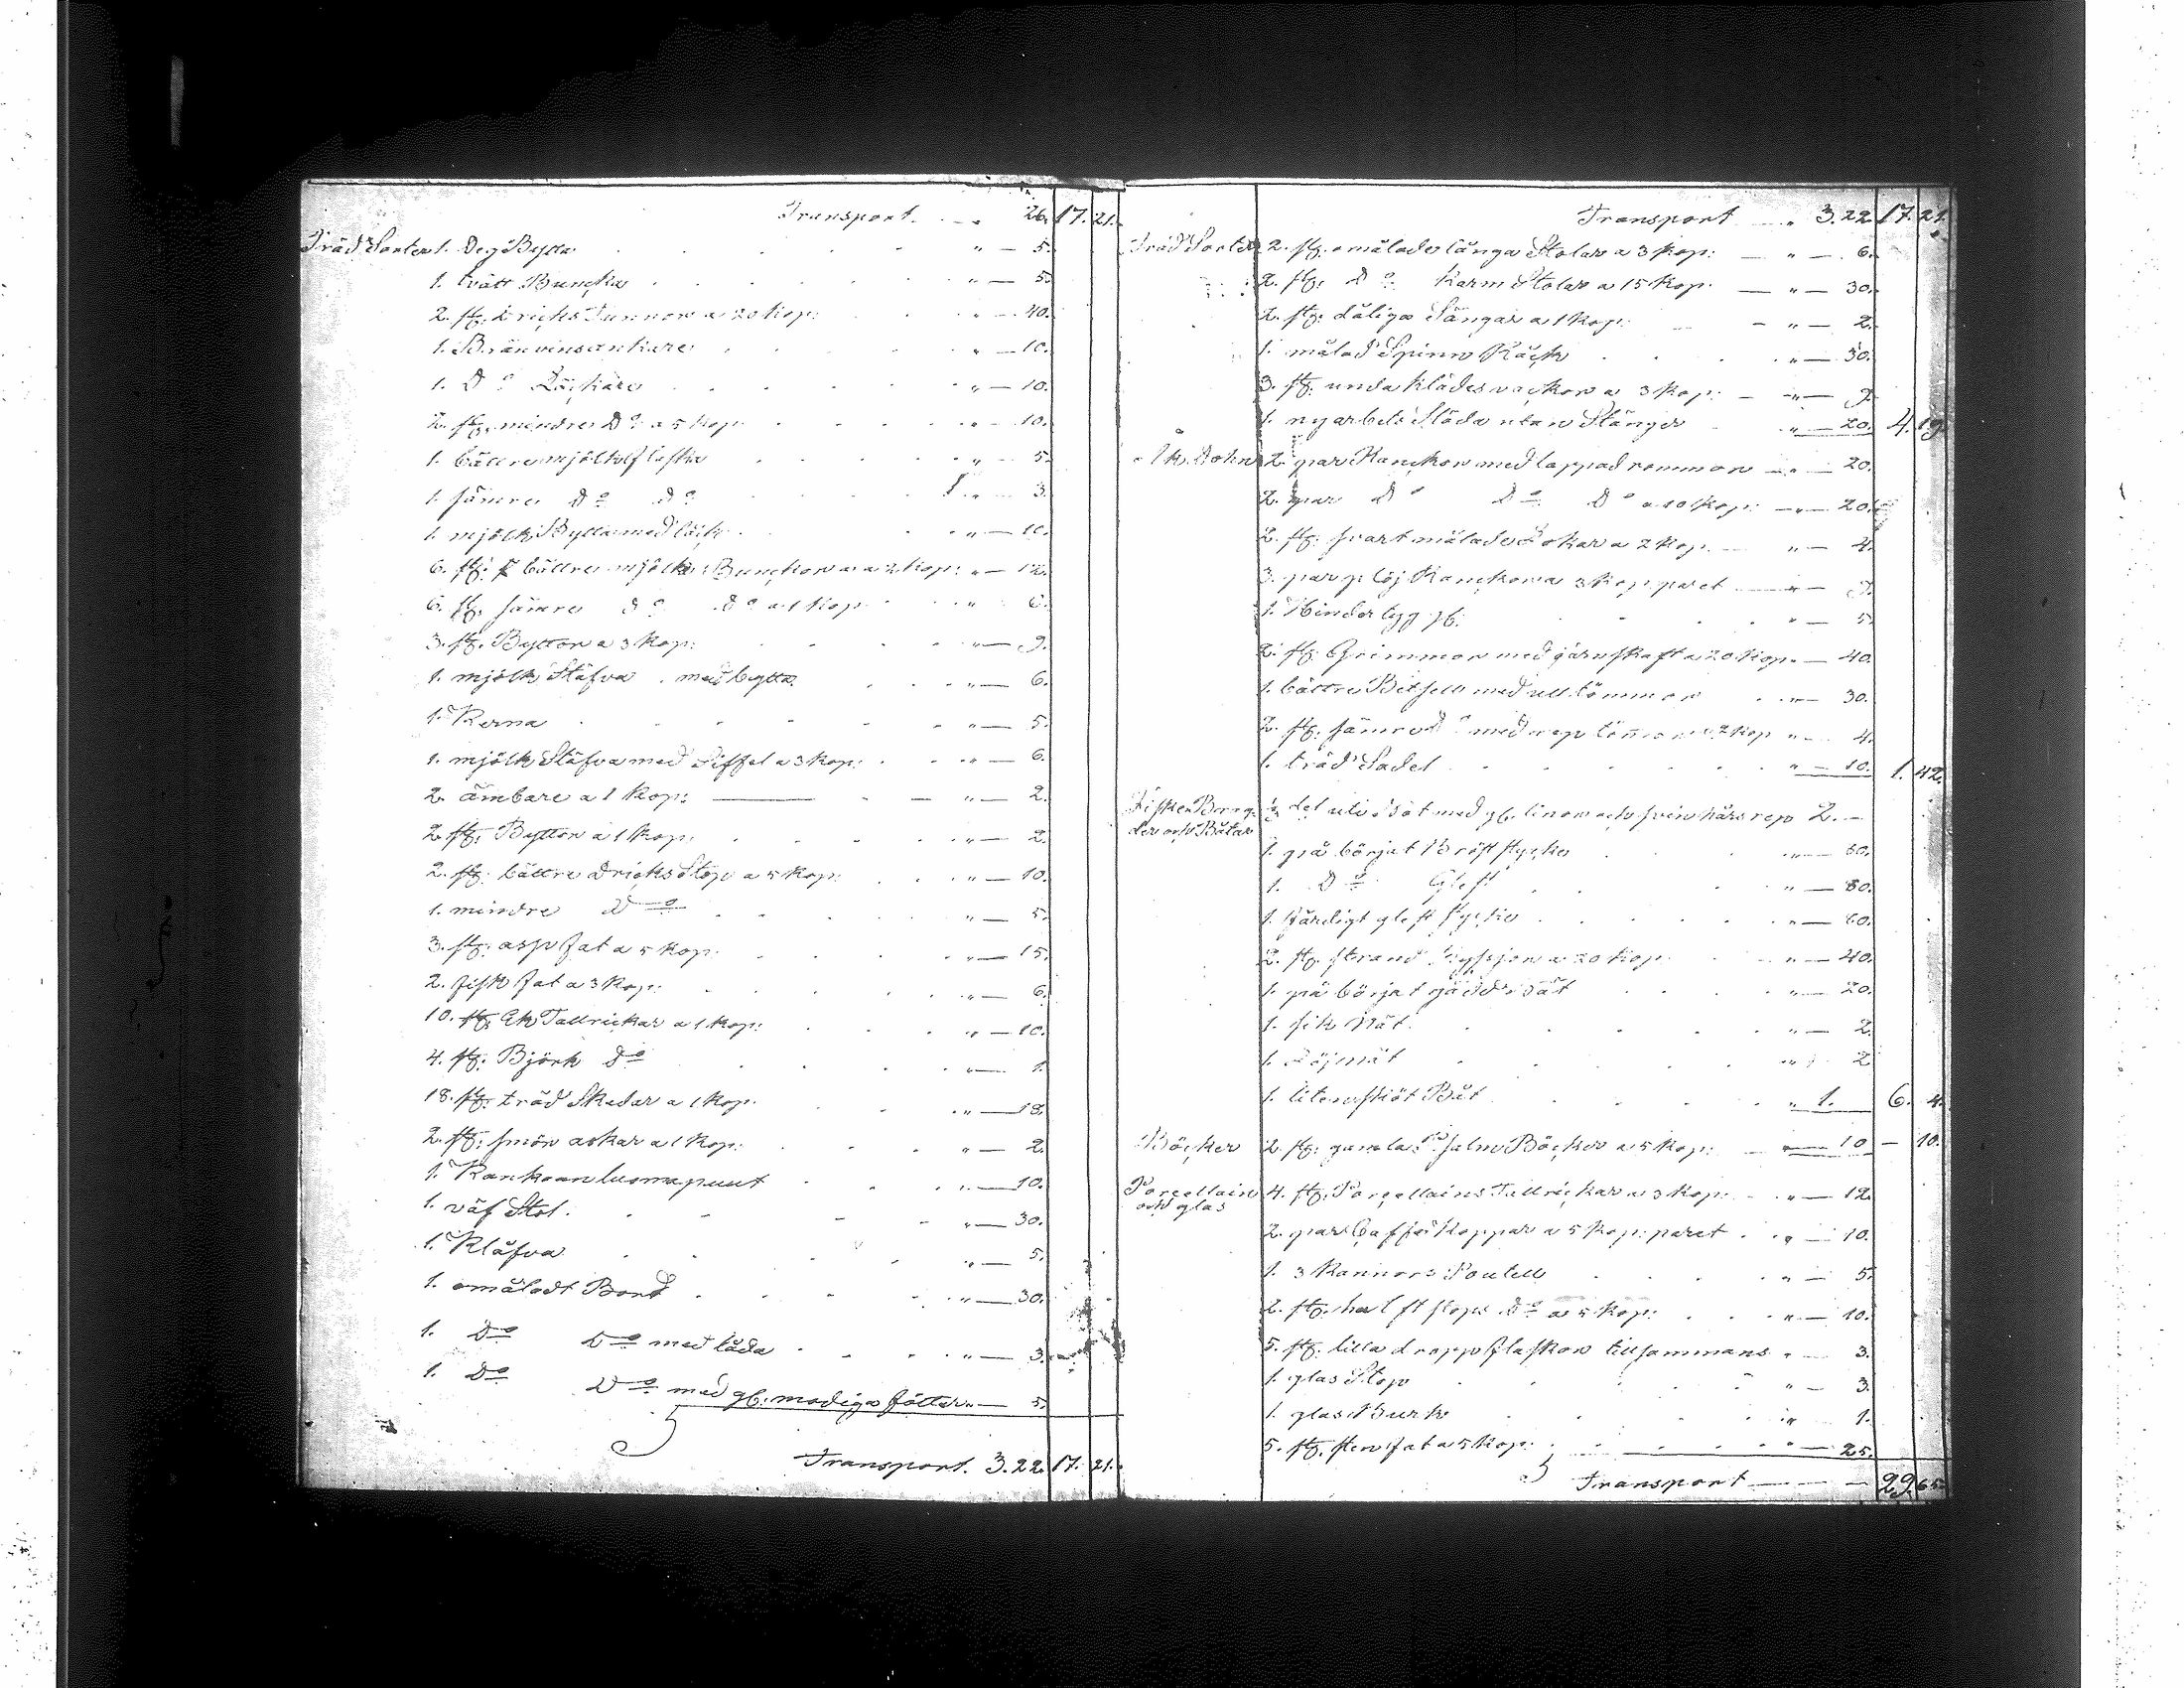 Transport. . . „ 26. 17. 21.
Träd Sorter 1. Deg Bytta . . . „ — 5.
1. tvätt Buncka . . . „ — 5.
2. stÿ: dricks Tunnor a 20 kop: . . „ — 40.
1. Bränvins ankare . . . „ — 10.
1. Do Läckäre . . . „ — 10.
2. stÿ. mindre Do a 5 kop: . . . „ — 10.
1. bättre mjölk flaska . . . „ — 5.
1. sämre Do Do . . . „ — 3.
1. mjölk Bytta med låck . . . „ — 10.
6. stÿ: bättre mjölk Bunckor a 2 kop: „ — 12.
6. stÿ. sämre Do Do a 1 kop . . „ 6.
3. stÿ. Byttor a 3 kop: . . . „ — 9.
1. mjölk Stäfva med bytta . . . „ — 6.
1. Kerna . . . „ — 5.
1. mjölk Stäfva med Siffel a 3 kop: . . „ — 6.
2. ämbare a 1 kop: — . — „ — 2.
2. stÿ. Byttor a 1 kop: . . . „ — 2.
2. stÿ. bättre dricks Stop a 5 kop: . . „ — 10.
1. mindre Do . . . „ — 5.
3. stÿ: asp fat a 5 kop: . . . „ — 15.
2. fisk fat a 3 kop: . . . „ — 6.
10. stÿ. Ek Tallrickar a 1 kop: . . . „ — 10.
4. stÿ: Björk Do . . . „ — 1.
18. stÿ: träd Skedar a 1 kop. . . „ — 18.
2. stÿ: smör askar a 1 kop: . . . „ — 2.
1. Kankaan luoma puut . . . „ — 10.
1. väf Stol. . . . „ — 30.
1. Klåfva . . . „ — 5.
1. omåladt Bord . . . „ — 30.
1. Do Do med låda . . . „ — 3.
1. Do Do med gl: madiga fötter „ — 5.
Transport. 3.22. 17. 21.
Transport . . „ 3.22. 17. 21.
Träd Sorter 2. stÿ: omålade långa Stolar a 3 kop: — „ — 6.
2. stÿ. Do Karm Stolar a 15 kop. — „ — 30.
2. stÿ: dåliga Sängar a 1 kop: — „ — 2.
1. målad Spinn Råck . . . „ — 50.
3. stÿ. unda klädes vackor a 3 kop: — „ — 9.
1. ny arbets Släda utan Stänger . „ — 20. 4. 19.
Åk don 2. par Ranckor med lappad rommor — „ — 20.
2. par Do Do Do a 10 kop: — „ — 20.
2. stÿ: svart målade Lokar a 2 kop. — „ — 4.
3. par plöj Ranckor a 3 kop: paret — „ — 9.
1. Hinder tyg gl: . . . „ — 5.
2. stÿ. Grimmor med järn skaft a 20 kop. — 40.
1. bättre Betsell med ull tömmor . „ — 30.
2. stÿ. sämre Do med rep tömor a 2 kop „ — 4.
1. träd Sadel . . . „ — 10. 1. 42.
Fiske Bragder och Båtar ½ del uti Nöt med gl. linor och svinhårs rep 2. —
1. på börjat Bröst stycke . . „ — 60.
1. Do Glest . . . „ — 80.
1. färdigt glest stycke . . . „ — 60.
2. stÿ. strand Ryssjor a 20 kop. . „ — 40.
1. på börjat gädd Nät . . . „ — 20.
1. sik Nät . . . „ — 2.
1. Löjnät . . . „ 2
1. liten skiöt Båt . . . „ 1. 6. 4.
Böcker 2. stÿ. gamla Psalm Böcker a 5 kop: — „ — 10 — 10.
Porcellain och glas 4. stÿ. Porcellains Tallrickar a 3 kop: . „ — 12.
2. par Caffe Koppar a 5 kop: paret . „ — 10.
1. 3 Kannors Boutell . . . „ — 5.
2. stÿ. halft stops Do a 5 kop: . . „ — 10.
5. stÿ. lilla dropp flaskor tillsammans „ — 3.
1. glas Stop . . . „ — 3.
1. glas Burk . . . „ 1.
5. stÿ. sten fat a 5 kop: . . . „ — 25.
Transport — — — 29. 65.